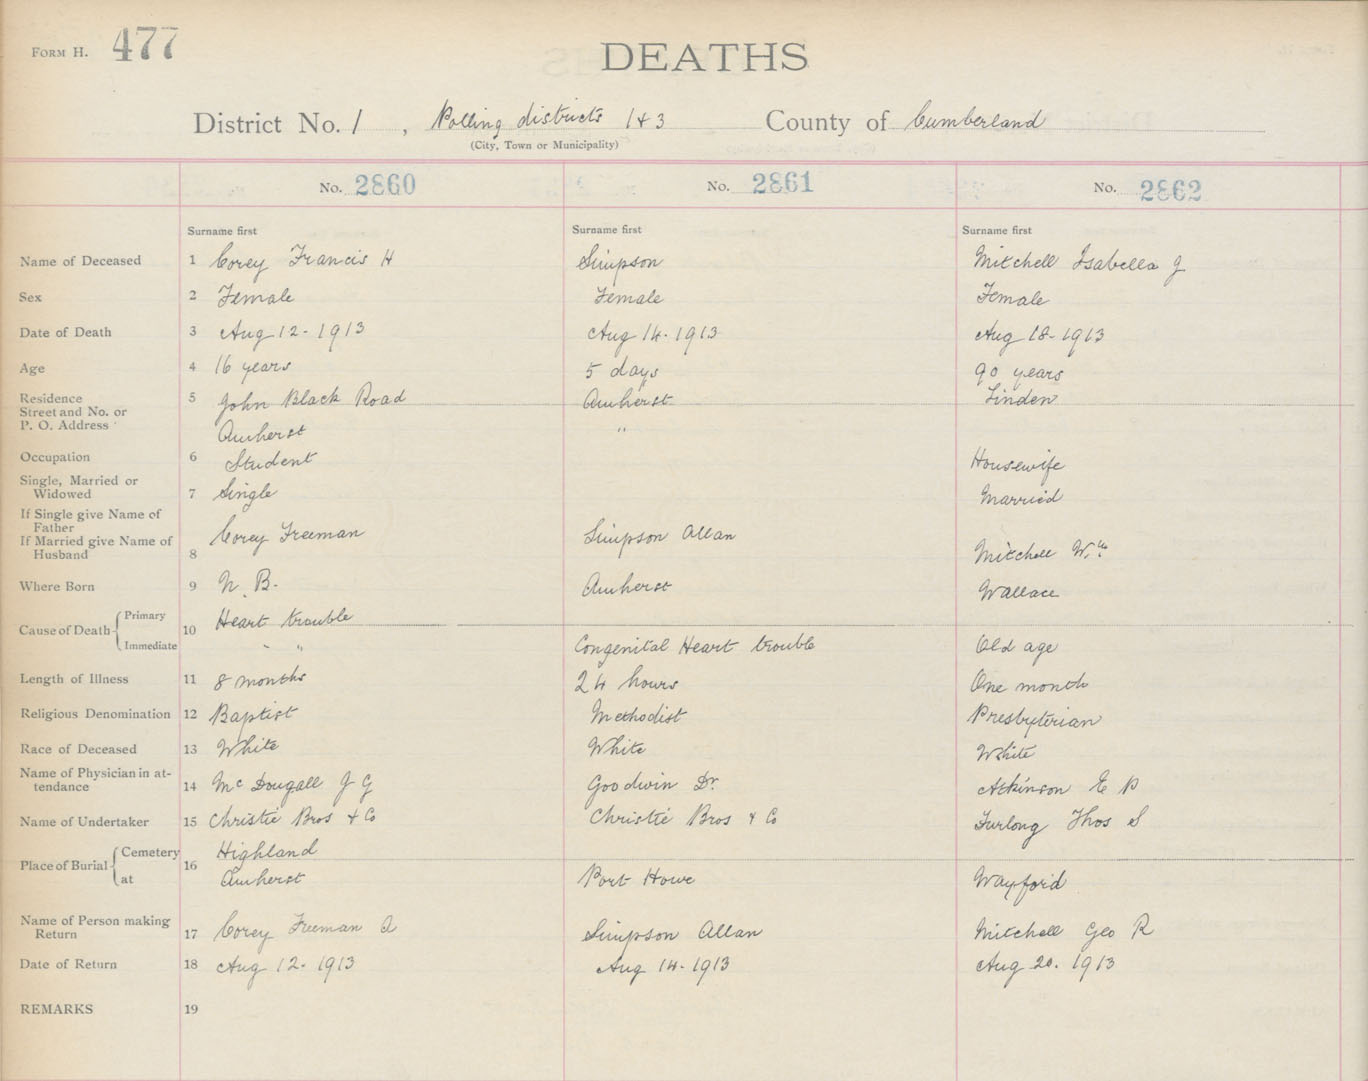 FORM H. 477
DEATHS
District No. 1, Polling districts 1 & 3 County of Cumberland
(City, Town or Municipality)
No. 2860 No. 2861 No. 2862
Surname first Surname first Surname first
Name of Deceased 1 Corey Francis H Simpson Mitchell Isabella J
Sex 2 Female Female Female
Date of Death 3 Aug 12 - 1913 Aug 14 - 1913 Aug 18 - 1913
Age 4 16 years 5 days 90 years
Residence 5 John Black Road Amherst Linden
Street and No. or
P. O. Address Amherst "
Occupation 6 Student Housewife
Single, Married or
Widowed 7 Single Married
If Single give Name of
Father Corey Freeman Simpson Allan
If Married give Name of
Husband 8 Mitchell Wm
Where Born 9 N. B. Amherst Wallace
Cause of Death Primary 10 Heart trouble
Immediate " " Congenital Heart trouble Old age
Length of Illness 11 8 months 24 hours One month
Religious Denomination 12 Baptist Methodist Presbyterian
Race of Deceased 13 White White White
Name of Physician in at-
tendance 14 Mc Dougall J G Goodwin Dr. Atkinson E P
Name of Undertaker 15 Christie Bros & Co Christie Bros & Co Furlong Thos S
Place of Burial Cemetery 16 Highland
at Amherst Port Howe Wayford
Name of Person making
Return 17 Corey Freeman A Simpson Allan Mitchell Geo R
Date of Return 18 Aug 12 - 1913 Aug 14 - 1913 Aug 20. 1913
REMARKS 19